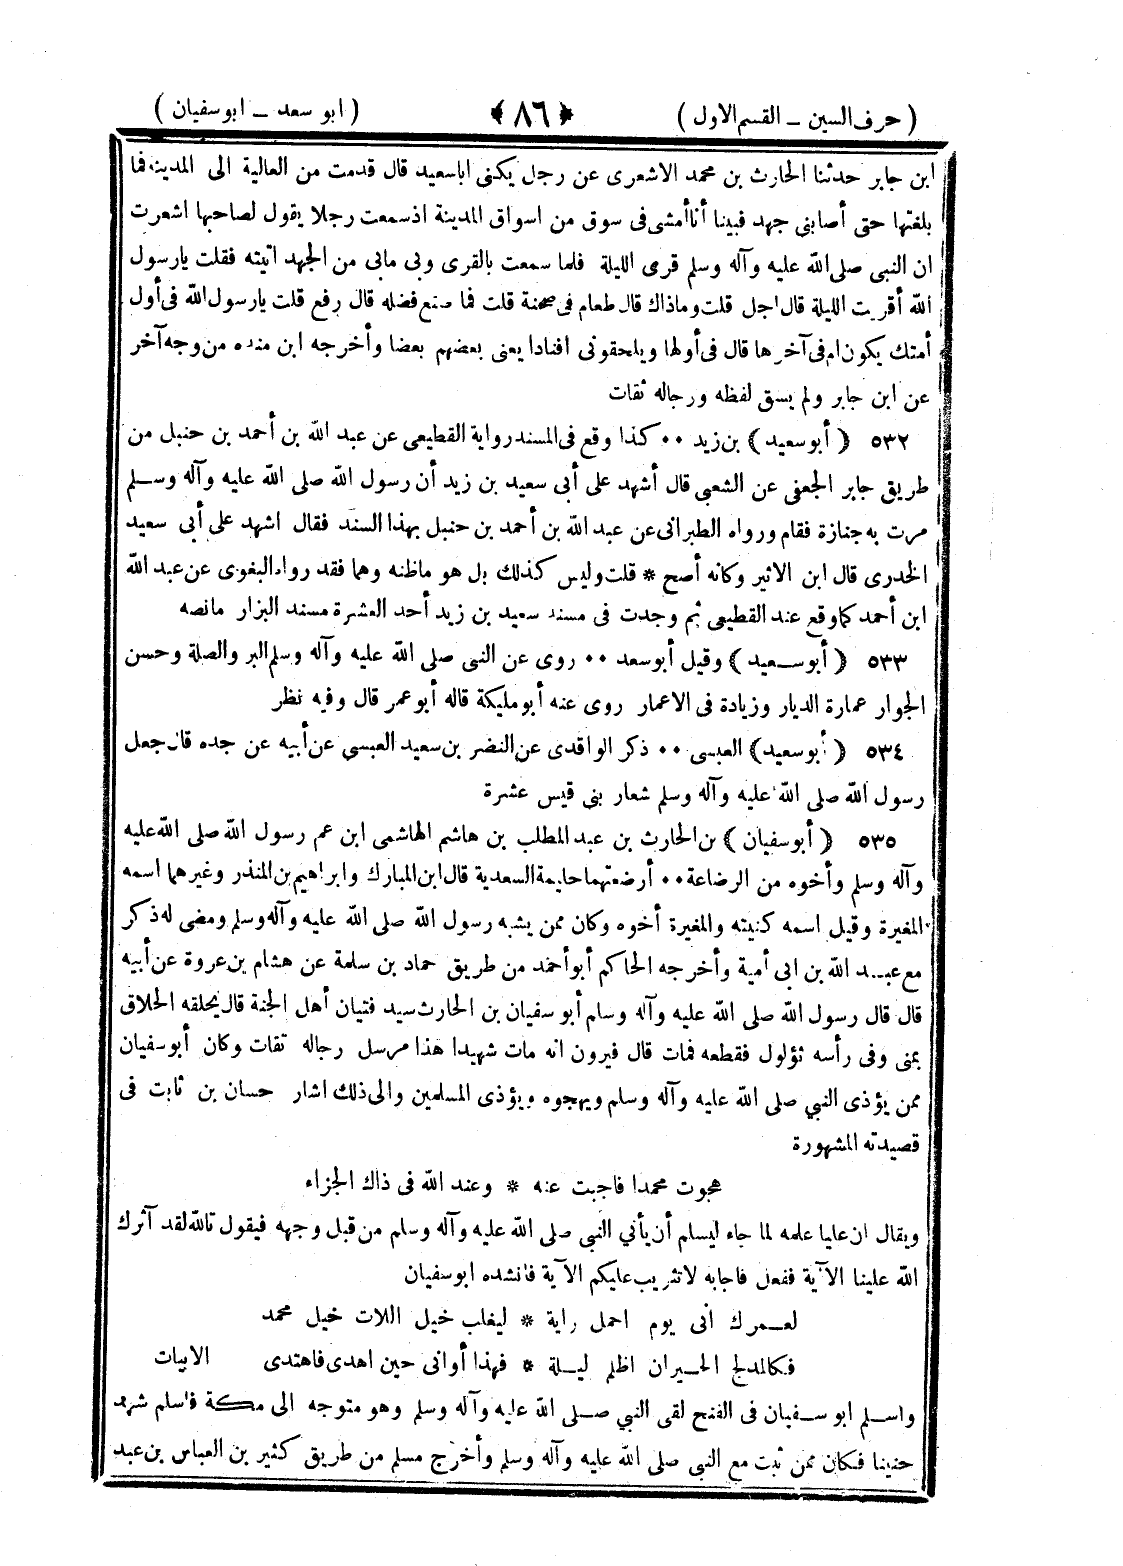 ( حرف السين ــ القسم الاول ) ﴿ ٨٦ ﴾ ( ابو سعد ــ ابوسفيان )
ابن جابر حدثنا الحارث بن محمد الاشعرى عن رجل يكنى اباسعيد قال قدمت من العالية الى المدينة فما
بلغتها حتى أصابنى جهد فبينا أنا أمشى فى سوق من اسواق المدينة اذسمعت رجلا يقول لصاحبها اشعرت
ان النبى صلى الله عليه وآله وسلم قرى الليلة فلما سمعت بالقرى وبى مابى من الجهد اتيته فقلت يارسول
الله أقريت الليلة قال اجل قلت وماذاك قال طعام فى صحنة قلت فما صنع فضله قال رفع قلت يارسول الله فى أول
أمتك يكون ام فى آخرها قال فى أولها ويلحقونى افنادا يعنى بعضهم بعضا وأخرجه ابن منده من وجه آخر
عن ابن جابر ولم يسق لفظه ورجاله ثقات
٥٣٢ ﴿ أبوسعيد ﴾ بن زيد ٠٠ كذا وقع فى المسند رواية القطيعى عن عبد الله بن أحمد بن حنبل من
طريق جابر الجعفى عن الشعبى قال أشهد على أبى سعيد بن زيد أن رسول الله صلى الله عليه وآله وسلم
مرت به جنازة فقام ورواه الطبرانى عن عبد الله بن أحمد بن حنبل بهذا السند فقال اشهد على أبى سعيد
الخدرى قال ابن الاثير وكانه أصح * قلت وليس كذلك بل هو ماظنه وهما فقد رواه البغوى عن عبد الله
ابن أحمد كماوقع عند القطيعى ثم وجدت فى مسند سعيد بن زيد أحد العشرة مسند البزار مانصه
٥٣٣ ﴿ أبوسعيد ﴾ وقيل أبوسعد ٠٠ روى عن النبى صلى الله عليه وآله وسلم البر والصلة وحسن
الجوار عمارة الديار وزيادة فى الاعمار روى عنه أبومليكة قاله أبوعمر قال وفيه نظر
٥٣٤ ﴿ أبوسعيد ﴾ العبسى ٠٠ ذكر الواقدى عن النضر بن سعيد العبسى عن أبيه عن جده قال جعل
رسول الله صلى الله عليه وآله وسلم شعار بنى قيس عشرة
٥٣٥ ﴿ أبوسفيان ﴾ بن الحارث بن عبد المطلب بن هاشم الهاشمى ابن عم رسول الله صلى الله عليه
وآله وسلم وأخوه من الرضاعة ٠٠ أرضعتهما حليمة السعدية قال ابن المبارك وابراهيم بن المنذر وغيرهما اسمه
المغيرة وقيل اسمه كنيته والمغيرة أخوه وكان ممن يشبه رسول الله صلى الله عليه وآله وسلم ومضى له ذكر
مع عبد الله بن ابى أمية وأخرجه الحاكم أبو أحمد من طريق حماد بن سلمة عن هشام بن عروة عن أبيه
قال قال رسول الله صلى الله عليه وآله وسلم أبو سفيان بن الحارث سيد فتيان أهل الجنة قال يحلقه الحلاق
بمنى وفى رأسه ثؤلول فقطعه فمات قال فيرون انه مات شهيدا هذا مرسل رجاله ثقات وكان أبوسفيان
ممن يؤذى النبي صلى الله عليه وآله وسلم ويهجوه ويؤذى المسلمين والى ذلك اشار حسان بن ثابت فى
قصيدته المشهورة
هجوت محمدا فاجبت عنه * وعند الله فى ذاك الجزاء
ويقال ان عليا علمه لما جاء ليسلم أن يأتي النبى صلى الله عليه وآله وسلم من قبل وجهه فيقول تالله لقد آثرك
الله علينا الآية ففعل فاجابه لاتثريب عليكم الآية فانشده ابوسفيان
لعمرك انى يوم احمل راية * ليغلب خيل اللات خيل محمد
فكالمدلج الحيران اظلم ليلة * فهذا أوانى حين اهدى فاهتدى الابيات
واسلم ابو سفيان فى الفتح لقى النبي صلى الله عليه وآله وسلم وهو متوجه الى مكة فاسلم شهد
حنينا فكان ممن ثبت مع النبى صلى الله عليه وآله وسلم وأخرج مسلم من طريق كثير بن العباس بن عبد